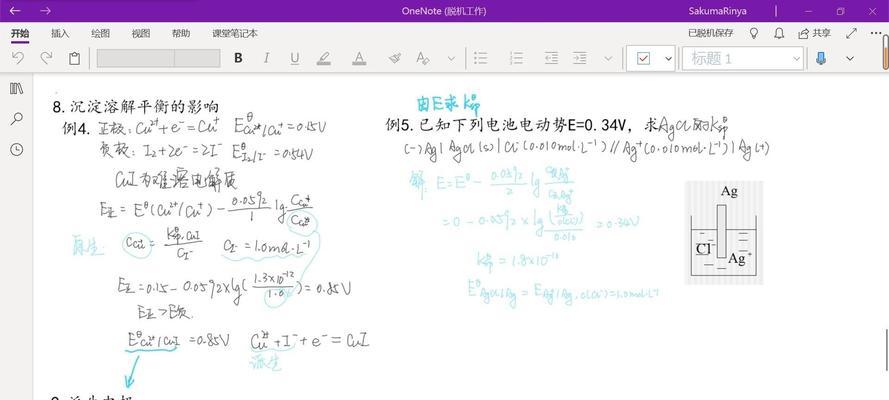 OneNote (脱机工作)
SakumaRinya
开始 插入 绘图 视图 帮助 课堂笔记本
已脱机保存 共享
B I U A
标题 1
8. 沉淀溶解平衡的影响
例4. 正极: Cu²⁺+e⁻=Cu⁺ E^θ Cu²⁺/Cu⁺=0.15V
负极: I₂+2e⁻=2I⁻ E^θ I₂/I⁻=0.54V
CuI为难溶电解质
E正=E^θ(Cu²⁺/Cu⁺)-0.0592/1 lg C Cu⁺/C Cu²⁺
派生: C Cu⁺=K^θ sp,CuI/C I⁻ C I⁻=1.0mol·L⁻¹
E正=0.15-0.0592×lg(1.3×10⁻¹²/1.0)=0.85V
E正>E负
E^θ Cu²⁺/CuI=0.85V Cu²⁺+I⁻+e⁻=CuI
派生
由E求K^θ sp
例5. 已知下列电池电动势E=0.34V，求AgCl的K^θ sp
(-)Ag|AgCl(s)|Cl⁻(0.010mol·L⁻¹)//Ag⁺(0.010mol·L⁻¹)|Ag(+)
解: E=E^θ-0.0592/2 lg
=0-0.0592×lg =0.34V
K^θ sp=1.8×10⁻¹⁰
E^θ AgCl/Ag=E Ag⁺/Ag, c(Cl⁻)=1.0mol·L⁻¹
Ag
Cl⁻
Ag⁺